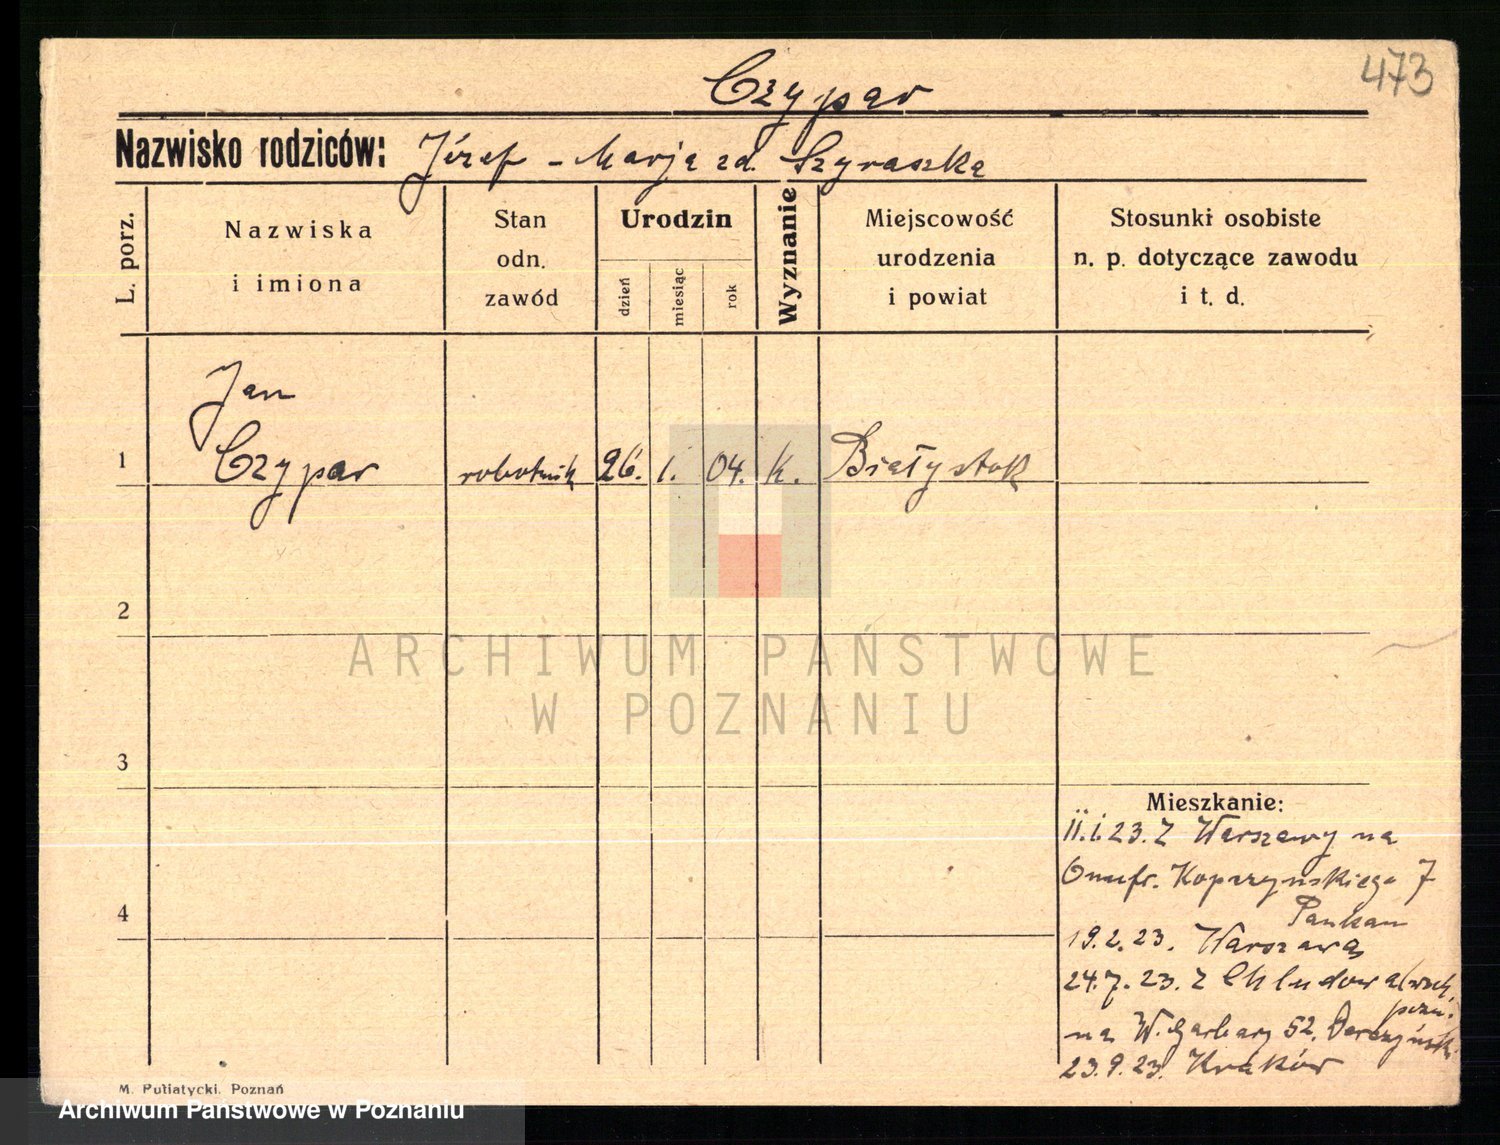 473
Czypar
Nazwisko rodziców: Józef - Marja zd. Szyraszka
L. porz.
Nazwiska
i imiona
Stan
odn.
zawód
Urodzin
dzień
miesiąc
rok
Wyznanie
Miejscowość
urodzenia
i powiat
Stosunki osobiste
n. p. dotyczące zawodu
i t. d.
Jan
1 Czypar robotnik 26. 1. 04. k. Białystok
2
ARCHIWUM PAŃSTWOWE
W POZNANIU
3
Mieszkanie:
11.1.23. Z Warszawy na
Onufr. Kopczyńskiego 7
Pankau
4
19.2.23. Warszawa
24.7.23. Z Chludowa
na W. Garbary 52.
23.9.23. Kraków
M. Putiatycki, Poznań
Archiwum Państwowe w Poznaniu